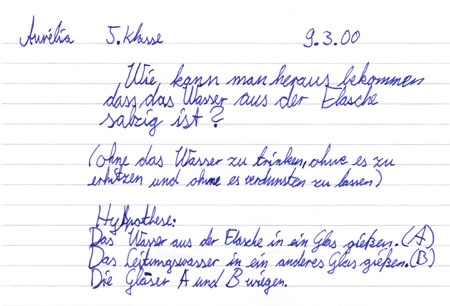 Aurélia 5. Klasse 9.3.00
Wie, kann man heraus bekommen
dass das Wasser aus der Flasche
salzig ist?
(ohne das Wasser zu trinken, ohne es zu
erhitzen und ohne es verdunsten zu lassen)
Hypothese:
Das Wasser aus der Flasche in ein Glas gießen. (A)
Das Leitungswasser in ein anderes Glas gießen. (B)
Die Gläser A und B wiegen.